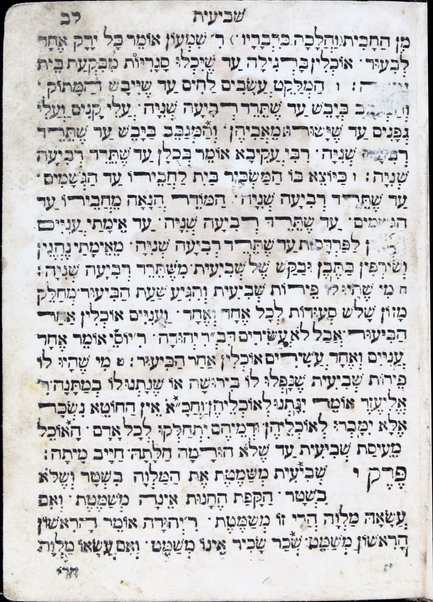 שביעית לב
מן החבית והלכה כדבריו ר׳ שמעון אומר כל ירק אחד
לביעור׃ אוכלין ברגילה עד שיכלו סנריות מבקעת בית
ו המלקט עשבים לחים עד שייבש המתוק׃
ביבש עד שתרד רביעה שניה׃ עלי קנים ועלי
גפנים עד שישרו מאביהן׃ והמגבב ביבש עד שתרד
שניה׃ רבי עקיבא אומר בכלן עד שתרד רביעה
שניה׃ ז כיוצא בו המשכיר בית לחבירו עד הגשמים׃
עד שתרד רביעה שניה׃ המודר הנאה מחבירו עד
הגשמים׃ עד שתרד רביעה שניה׃ עד אימתי עניים
לפרדסות עד שתרד רביעה שניה׃ מאימתי נהנין
ושורפין בתבן ובקש של שביעית משתרד רביעה שניה׃
ח מי שהיו לו פירות שביעית והגיע שעת הביעור מחלק
מזון שלש סעודות לכל אחד ואחד׃ ועניים אוכלין אחר
הביעור אבל לא עשירים דב׳ ר׳ יהודה׃ ר׳ יוסי אומר אחד
עניים ואחד עשירים אוכלין אחר הביעור׃ ט מי שהיו לו
פירות שביעית שנפלו לו בירושה או שנתנו לו במתנה ר׳
אליעזר אומר ינתנו לאוכליהן וחכ״א אין החוטא נשכר
אלא ימכרו לאוכליהן ודמיהם יתחלקו לכל אדם׃ האוכל
מעיסת שביעית עד שלא הורמה חלתה חייב מיתה׃
פרק י שביעית משמטת את המלוה בשטר ושלא
בשטר׃ הקפת החנות אינה משמטת׃ ואם
עשאה מלוה הרי זו משמטת׃ ר׳ יהודה אומר הראשון
הראשון משמט׃ שכר שכיר אינו משמט׃ ואם עשאו מלוה
הרי